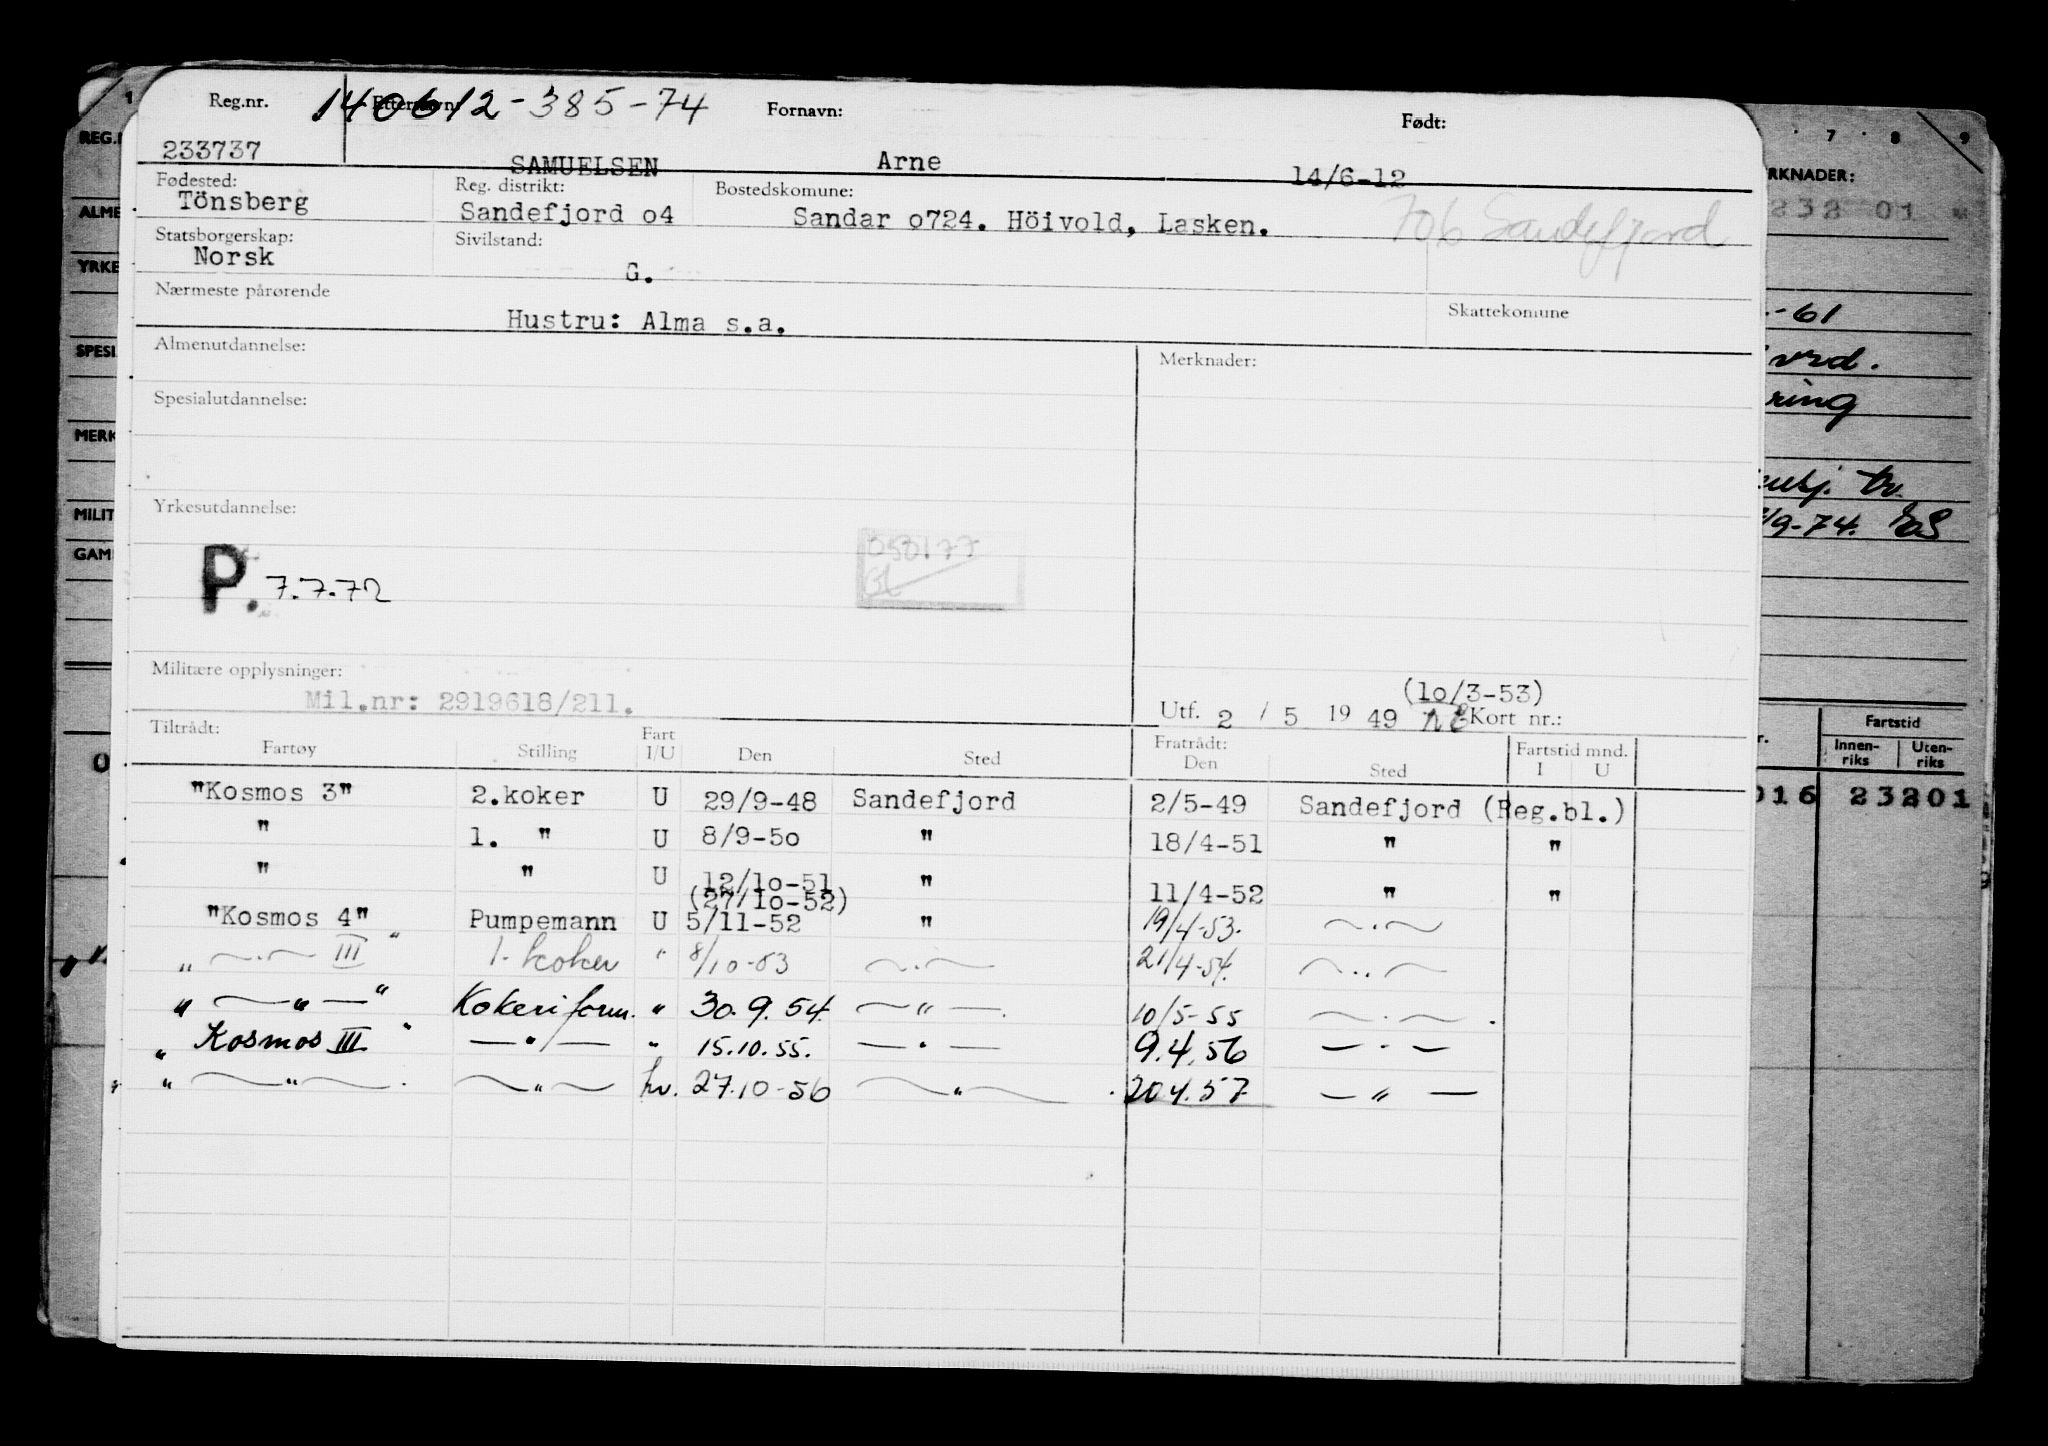 Reg.nr. Etternavn: 140612-385-74 Fornavn: Født:
233737 SAMUELSEN Arne 14/6-12
Fødested: Reg. distrikt: Bostedskomune:
Tönsberg Sandefjord o4 Sandar o724. Höivold, Lasken. 706 Sandefjord
Statsborgerskap: Sivilstand:
Norsk G.
Nærmeste pårørende Skattekomune
Hustru: Alma s.a.
Almenutdannelse: Merknader:
Spesialutdannelse:
Yrkesutdannelse:
P. 7.7.72
Militære opplysninger:
Mil.nr: 2919618/211.
(1o/3-53)
Utf. 2 / 5 19 49 Kort nr.:
Tiltrådt: Fratrådt:
Fartøy Stilling Fart I/U Den Sted Den Sted Fartstid mnd. I U
"Kosmos 3" 2.koker U 29/9-48 Sandefjord 2/5-49 Sandefjord (Reg.bl.)
" 1. " U 8/9-5o " 18/4-51 " "
" " U 12/1o-51 " 11/4-52 " "
(27/1o-52)
"Kosmos 4" Pumpemann U 5/11-52 " 19/4-53. —.—
" —.— III " 1. koker " 8/10-53 —.— 21/4-54. —..—
" —"— " Kokeriform. " 30.9.54. —"—. 10/5-55 —.—.
" Kosmos III " —"— " 15.10.55. —"— 9.4.56 —.—
" —"—. —"— hv. 27.10-56 —"—. 20.4.57 —"—
REG.
ALME
YRKE
SPESI
MERK
MILIT
GAM
7 8 9
RKNADER:
232 01
-61
vrd.
ring
/9-74.
Fartstid
Innenriks Utenriks
016 23201